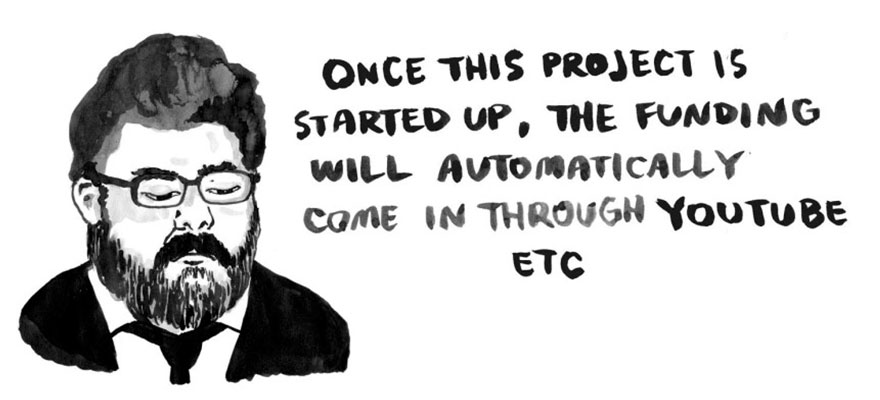 ONCE THIS PROJECT IS
STARTED UP, THE FUNDING
WILL AUTOMATICALLY
COME IN THROUGH YOUTUBE
ETC